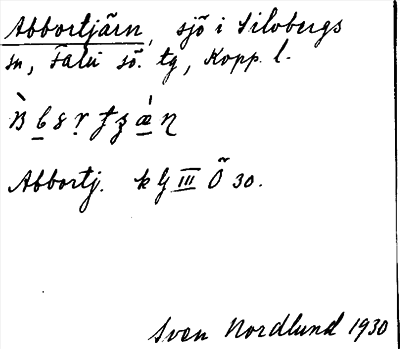 Abbortjärn, sjö i Silvbergs
sn, Falu sö. tg, Kopp. l.
Abbortj. k G III Ö 30.
Sven Nordlund 1930